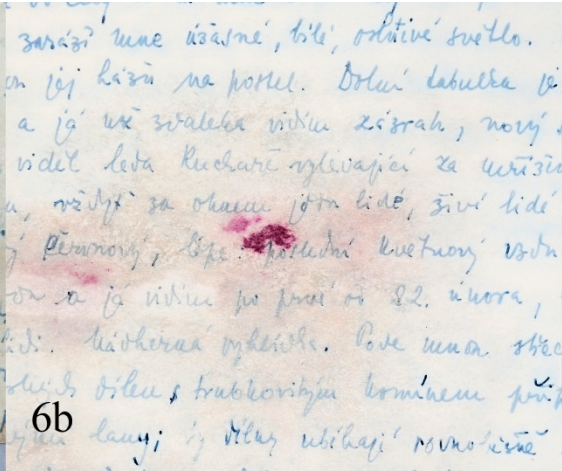 zaráží mne úžasné, bílé, oslnivé světlo.
jej házím na postel. Dolní tabulka je
a já už zdaleka vidím zázrak, nový
viděl leda kuchaře vylévající za mříží
vždyť za oknem jdou lidé, živí lidé
červnový, lépe poslední květnový
a já vidím po prvé od 22. února,
Nádherná vyhlídka. Pode mnou
dílen s trubkovitým komínem
6b
ty dílny ubíhají rovnoběžně